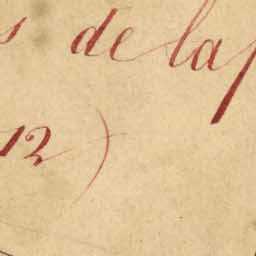 s de la
12)